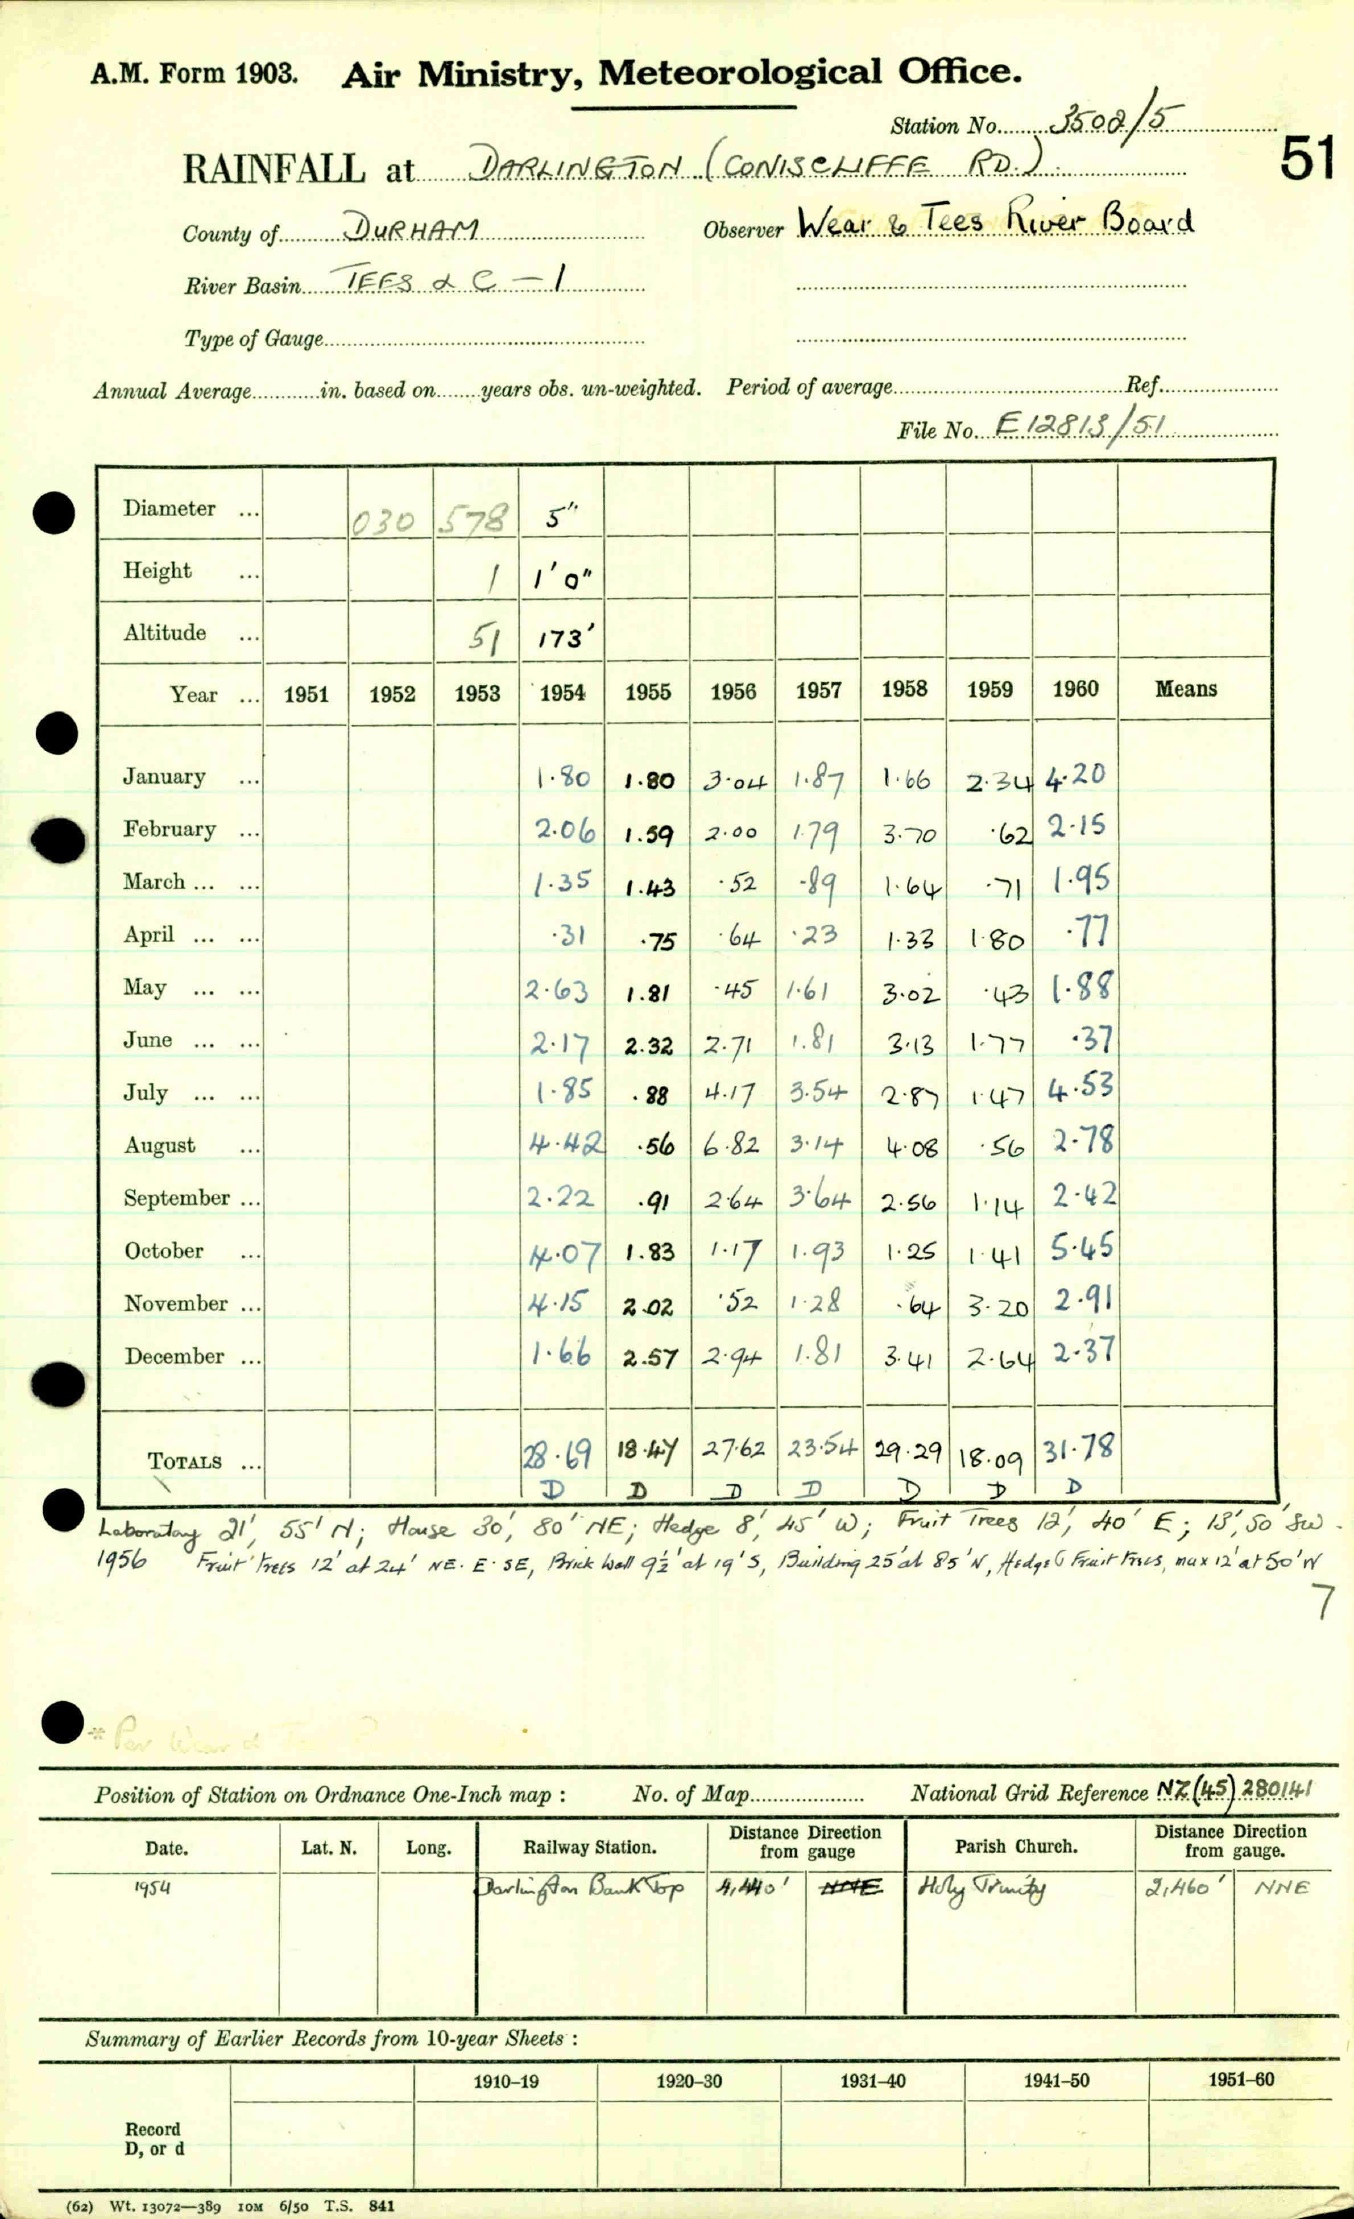 A.M. Form 1903. Air Ministry, Meteorological Office.
Station No. 3502/5
51
RAINFALL at DARLINGTON (CONISCLIFFE RD.)
County of DURHAM Observer Wear & Tees River Board
River Basin TEES & C — 1
Type of Gauge
Annual Average in. based on years obs. un-weighted. Period of average Ref.
File No. E12813/51
Diameter ... 030 578 5"
Height ... 1 1' 0"
Altitude ... 51 173'
Year ... 1951 1952 1953 1954 1955 1956 1957 1958 1959 1960 Means
January ... 1.80 1.80 3.04 1.87 1.66 2.34 4.20
February ... 2.06 1.59 2.00 1.79 3.70 .62 2.15
March ... ... 1.35 1.43 .52 .89 1.64 .71 1.95
April ... ... .31 .75 .64 .23 1.33 1.80 .77
May ... ... 2.63 1.81 .45 1.61 3.02 .43 1.88
June ... ... 2.17 2.32 2.71 1.81 3.13 1.77 .37
July ... ... 1.85 .88 4.17 3.54 2.87 1.47 4.53
August ... 4.42 .56 6.82 3.14 4.08 .56 2.78
September ... 2.22 .91 2.64 3.64 2.56 1.14 2.42
October ... 4.07 1.83 1.17 1.93 1.25 1.41 5.45
November ... 4.15 2.02 .52 1.28 .64 3.20 2.91
December ... 1.66 2.57 2.94 1.81 3.41 2.64 2.37
TOTALS ... 28.69 18.47 27.62 23.54 29.29 18.09 31.78
D D D D D D D
Laboratory 21', 55' N; House 30', 80' NE; Hedge 8', 45' W; Fruit Trees 12', 40' E; 13', 50' SW.
1956 Fruit Trees 12' at 24' NE. E. SE, Brick Wall 9½' at 19' S, Building 25' at 85' N, Hedge & Fruit Trees, max 12' at 50' W
7
* Per Wear &
Position of Station on Ordnance One-Inch map : No. of Map National Grid Reference NZ(45) 280141
Date. Lat. N. Long. Railway Station. Distance Direction from gauge Parish Church. Distance Direction from gauge.
1954 Darlington Bank Top 4,440' NNE Holy Trinity 2,460' NNE
Summary of Earlier Records from 10-year Sheets :
1910–19 1920–30 1931–40 1941–50 1951–60
Record
D, or d
(62) Wt. 13072—389 10M 6/50 T.S. 841